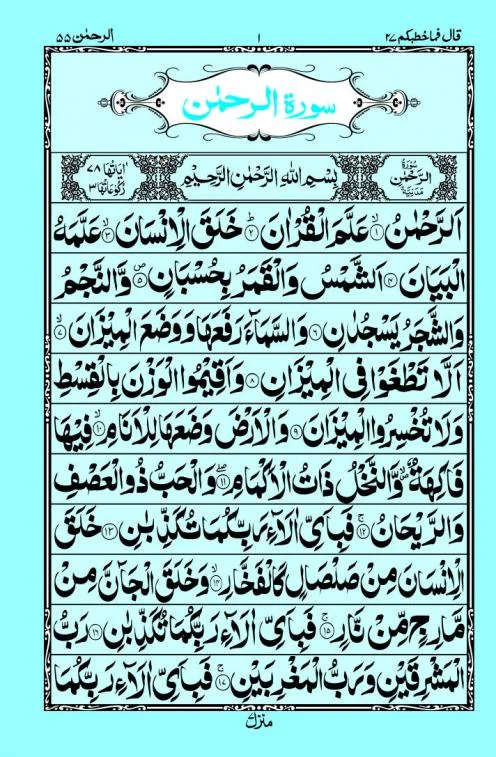 قال فما خطبكم ٢٧ ١ الرحمٰن ٥٥
سورة الرحمٰن
سُوْرَةُ الرَّحْمٰنِ مَدَنِيَّةٌ بِسْمِ اللهِ الرَّحْمٰنِ الرَّحِيْمِ اٰيَاتُهَا ٧٨ رُكُوْعَاتُهَا ٣
اَلرَّحْمٰنُ ۙ﴿١﴾ عَلَّمَ الْقُرْاٰنَ ؕ﴿٢﴾ خَلَقَ الْاِنْسَانَ ۙ﴿٣﴾ عَلَّمَهُ
الْبَيَانَ ﴿٤﴾ اَلشَّمْسُ وَالْقَمَرُ بِحُسْبَانٍ ۪﴿٥﴾ وَّالنَّجْمُ
وَالشَّجَرُ يَسْجُدٰنِ ﴿٦﴾ وَالسَّمَآءَ رَفَعَهَا وَوَضَعَ الْمِيْزَانَ ۙ﴿٧﴾
اَلَّا تَطْغَوْا فِى الْمِيْزَانِ ﴿٨﴾ وَاَقِيْمُوا الْوَزْنَ بِالْقِسْطِ
وَلَا تُخْسِرُوا الْمِيْزَانَ ﴿٩﴾ وَالْاَرْضَ وَضَعَهَا لِلْاَنَامِ ۙ﴿١٠﴾ فِيْهَا
فَاكِهَةٌ ۪ۙ وَّالنَّخْلُ ذَاتُ الْاَكْمَامِ ۖ﴿١١﴾ وَالْحَبُّ ذُو الْعَصْفِ
وَالرَّيْحَانُ ۚ﴿١٢﴾ فَبِاَىِّ اٰلَآءِ رَبِّكُمَا تُكَذِّبٰنِ ﴿١٣﴾ خَلَقَ
الْاِنْسَانَ مِنْ صَلْصَالٍ كَالْفَخَّارِ ۙ﴿١٤﴾ وَخَلَقَ الْجَآنَّ مِنْ
مَّارِجٍ مِّنْ نَّارٍ ۚ﴿١٥﴾ فَبِاَىِّ اٰلَآءِ رَبِّكُمَا تُكَذِّبٰنِ ﴿١٦﴾ رَبُّ
الْمَشْرِقَيْنِ وَرَبُّ الْمَغْرِبَيْنِ ۚ﴿١٧﴾ فَبِاَىِّ اٰلَآءِ رَبِّكُمَا
منزل ٧